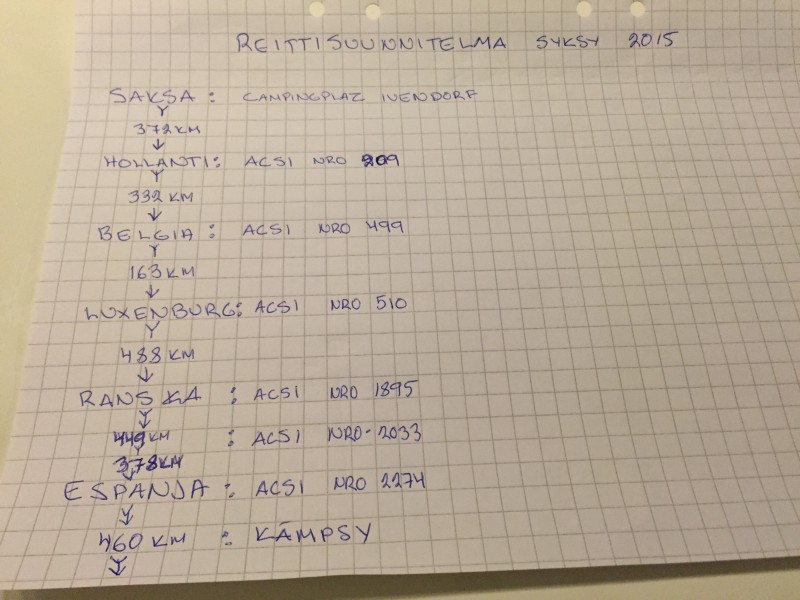 REITTISUUNNITELMA SYKSY 2015
SAKSA: CAMPINGPLAZ IVENDORF
372KM
HOLLANTI: ACSI NRO 209
332 KM
BELGIA: ACSI NRO 499
163KM
LUXENBURG: ACSI NRO 510
488 KM
RANSKA: ACSI NRO 1895
449KM : ACSI NRO-2033
378KM
ESPANJA: ACSI NRO 2274
460 KM : KÄMPSY